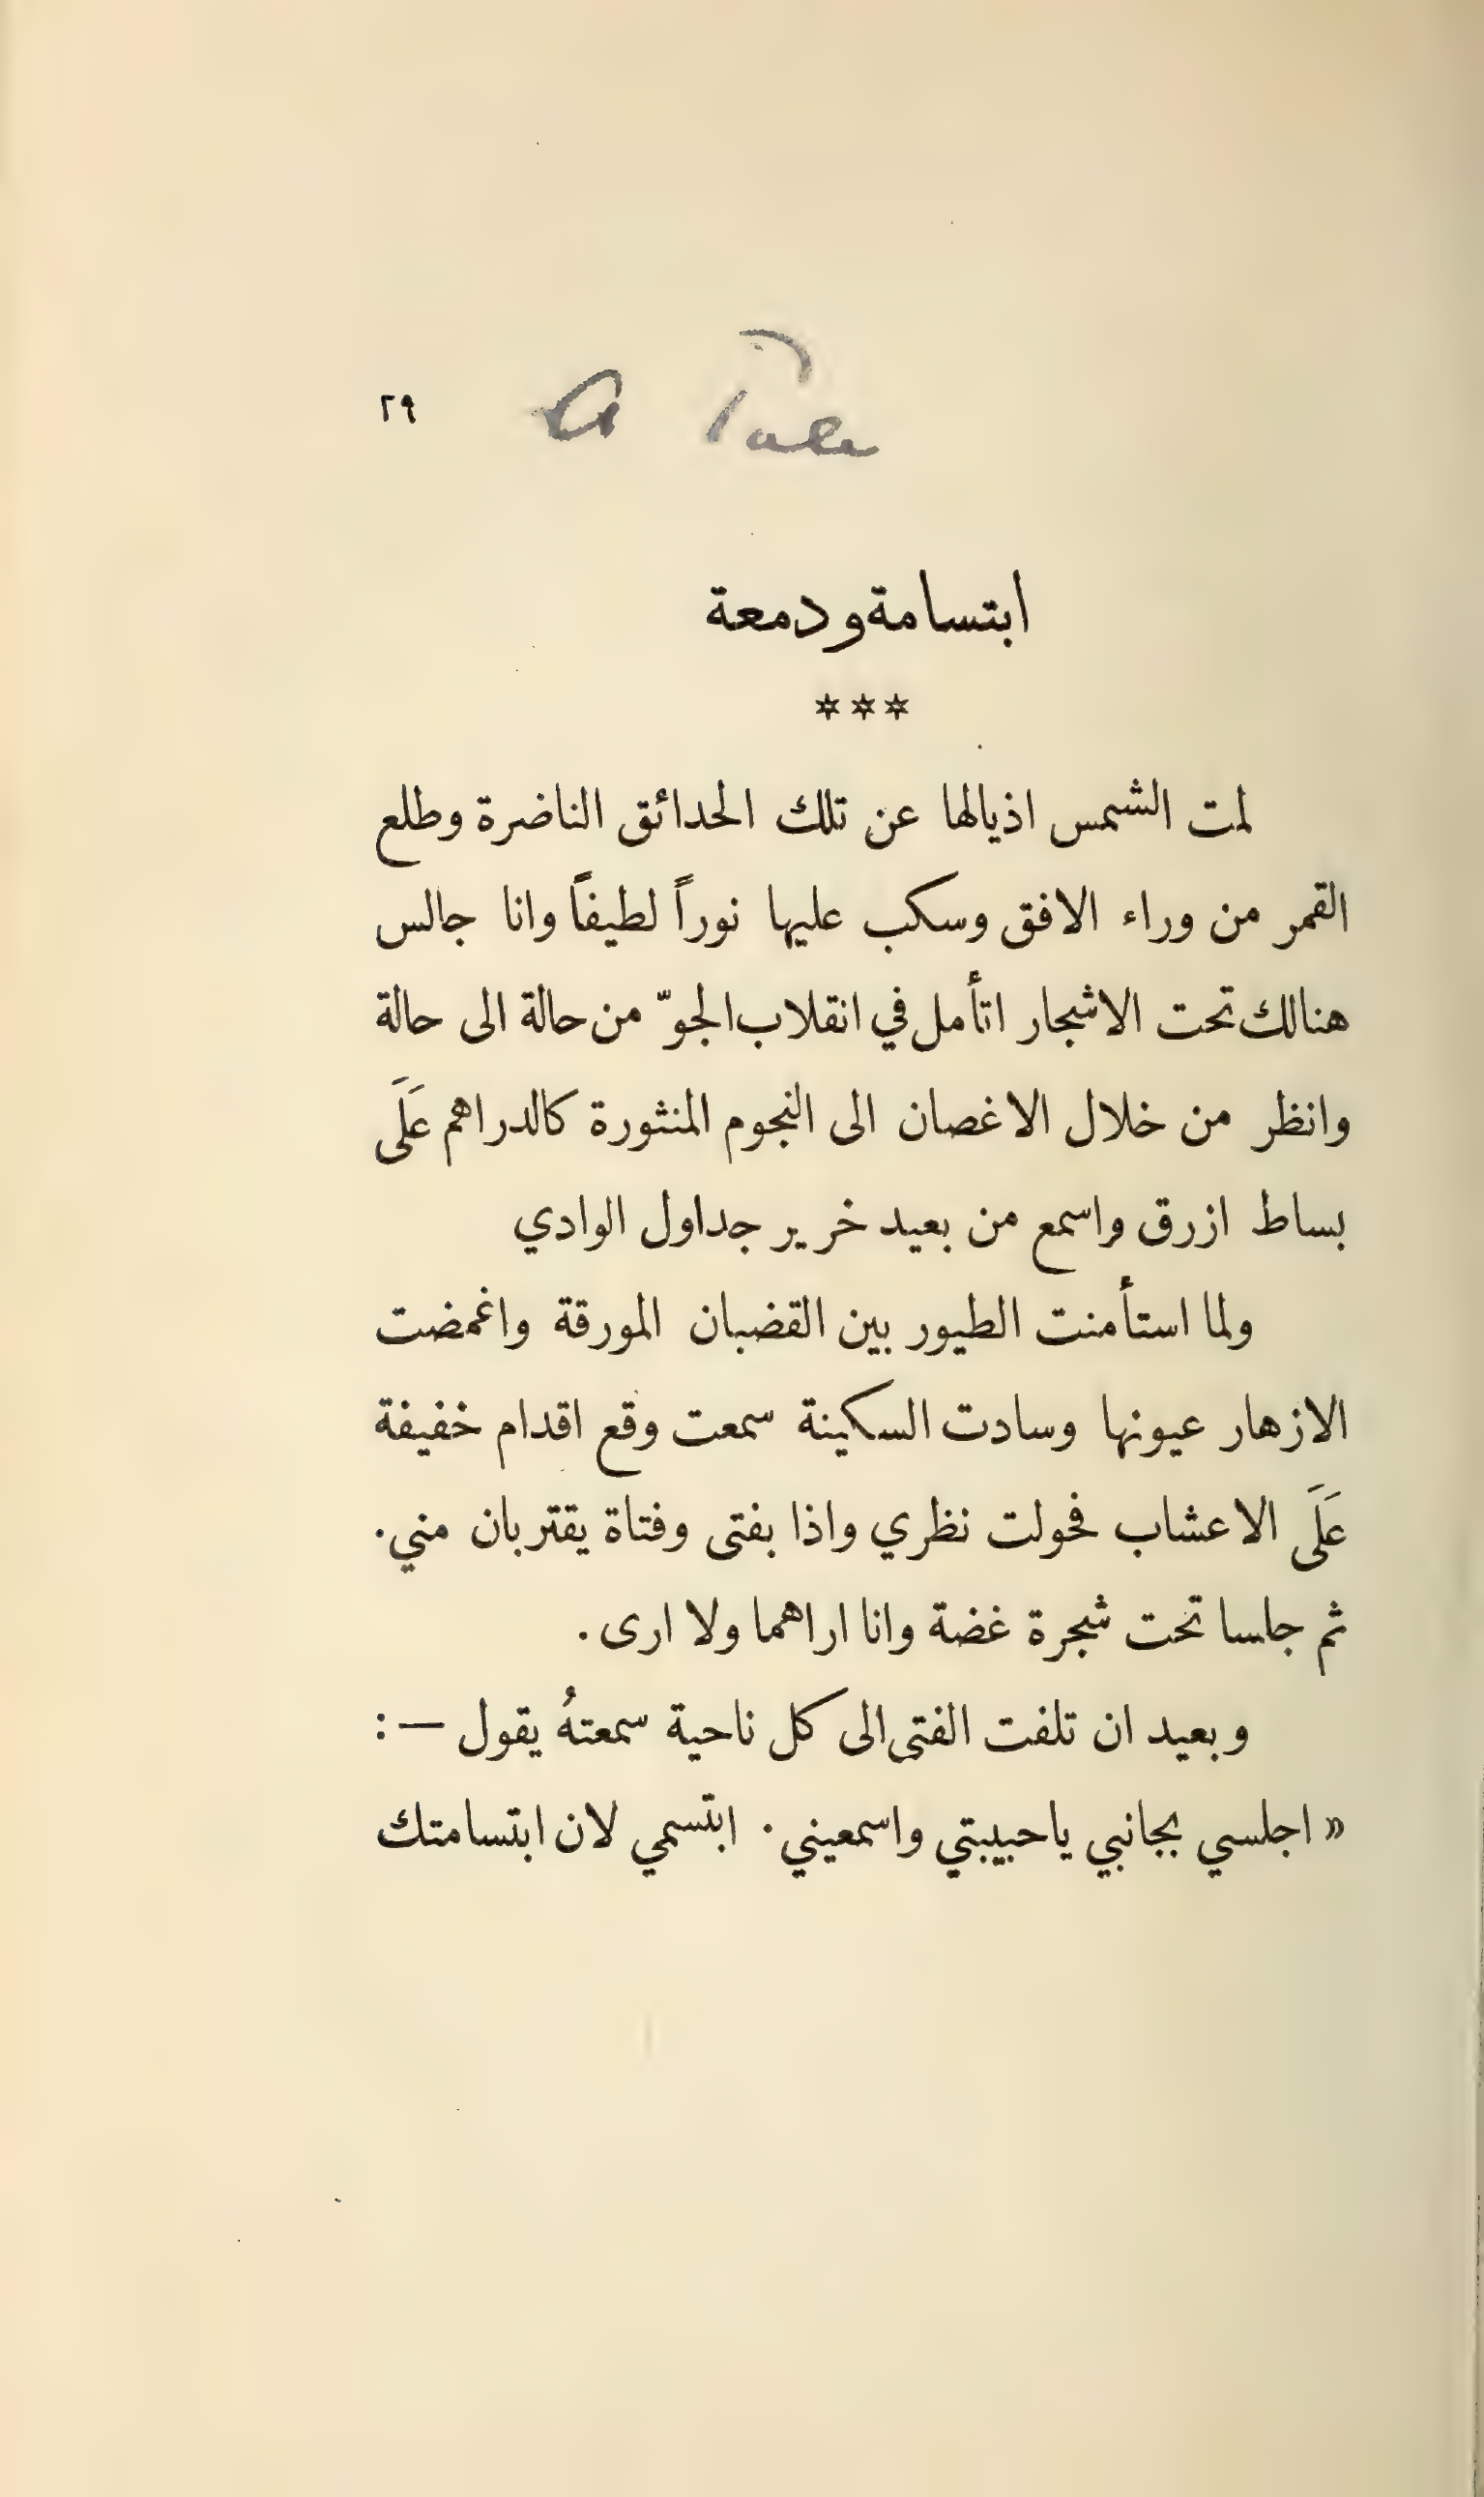 ٢٩
ابتسامة ودمعة
***
لمت الشمس اذيالها عن تلك الحدائق الناضرة وطلع
القمر من وراء الافق وسكب عليها نوراً لطيفاً وانا جالس
هنالك تحت الاشجار اتأمل في انقلاب الجوّ من حالة الى حالة
وانظر من خلال الاغصان الى النجوم المنثورة كالدراهم عَلَى
بساط ازرق واسمع من بعيد خرير جداول الوادي
ولما استأمنت الطيور بين القضبان المورقة واغمضت
الازهار عيونها وسادت السكينة سمعت وقع اقدام خفيفة
عَلَى الاعشاب فحولت نظري واذا بفتى وفتاة يقتربان مني.
ثم جلسا تحت شجرة غضة وانا اراهما ولا ارى.
وبعيد ان تلفت الفتى الى كل ناحية سمعتهُ يقول —:
« اجلسي بجانبي ياحبيبتي واسمعيني. ابتسمي لان ابتسامتك